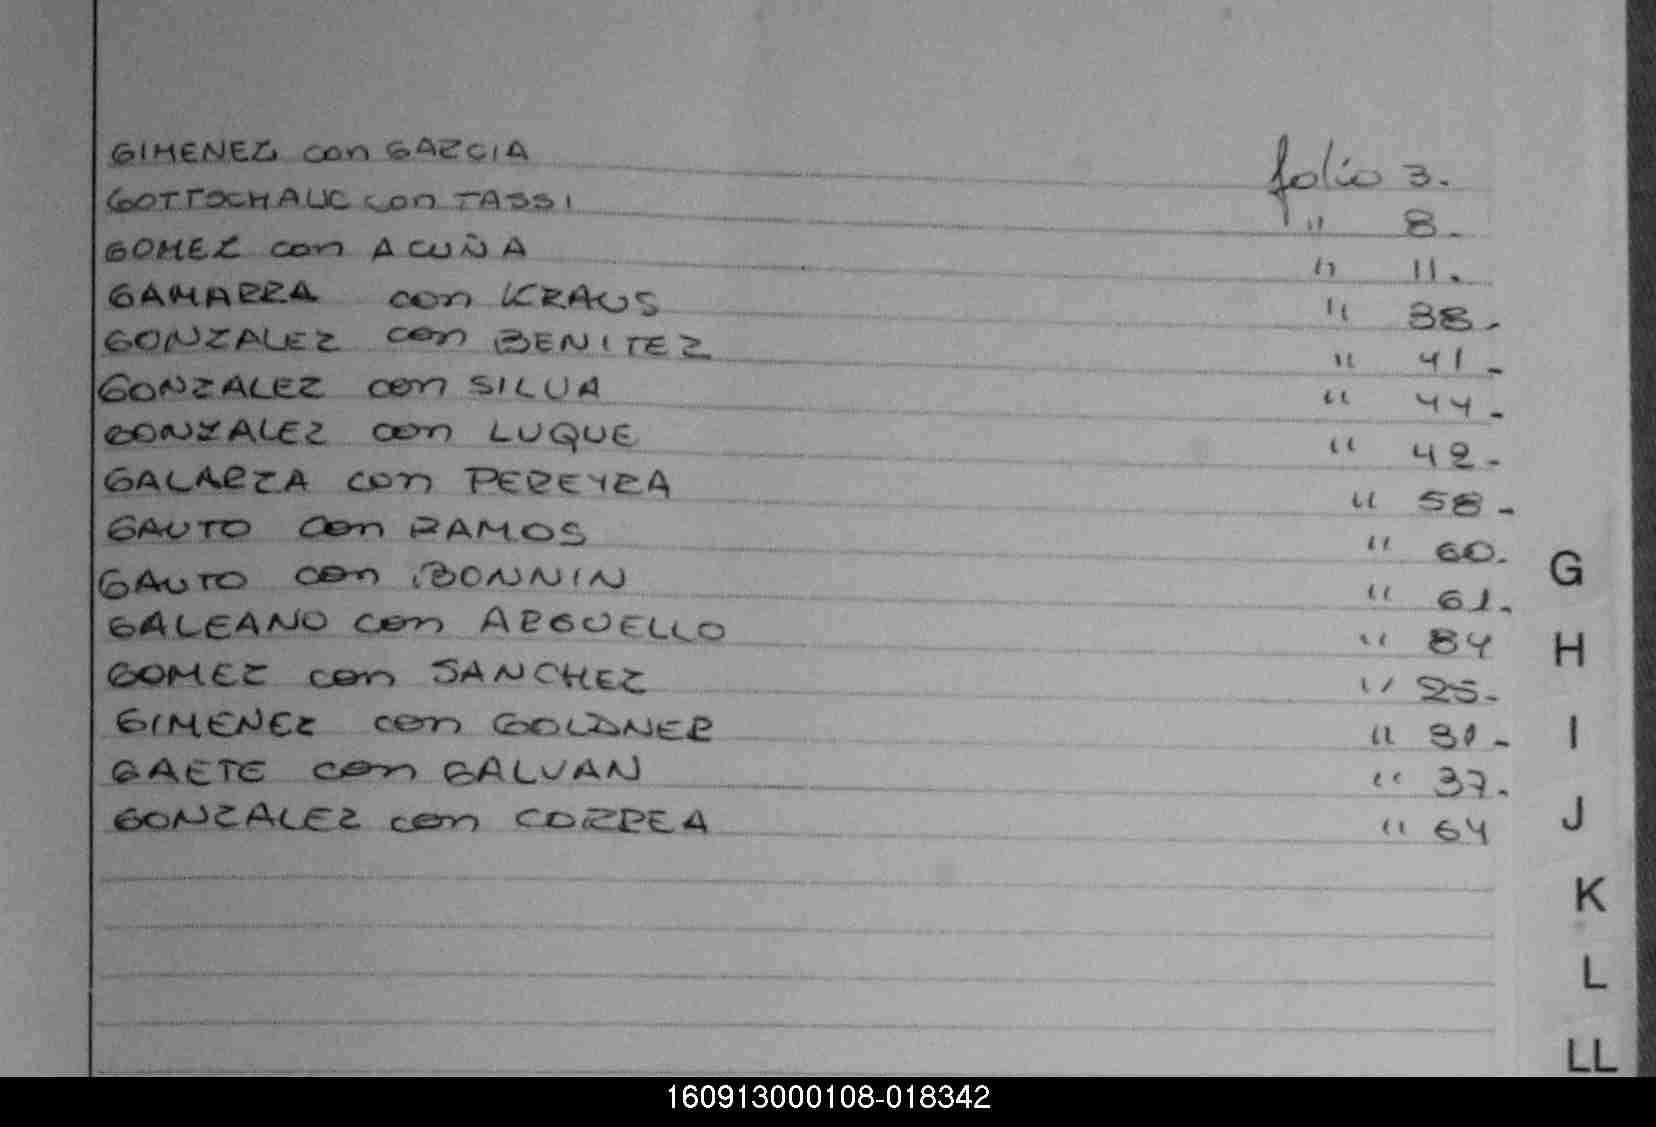 GIMENEZ con GARCIA folio 3.
GOTTSCHALIC con TASSI " 8.
GOMEZ con ACUÑA " 11.
GAMARRA con KRAUS " 38.
GONZALEZ con BENITEZ " 41.
GONZALEZ con SILVA " 44.
GONZALEZ con LUQUE " 42.
GALARZA con PEREYRA " 58.
GAUTO con RAMOS " 60.
GAUTO con BONNIN " 61.
GALEANO con ARGUELLO " 84
GOMEZ con SANCHEZ " 25.
GIMENEZ con GOLDNER " 30.
GAETE con GALVAN " 37.
GONZALEZ con CORREA " 64
G
H
I
J
K
L
LL
160913000108-018342